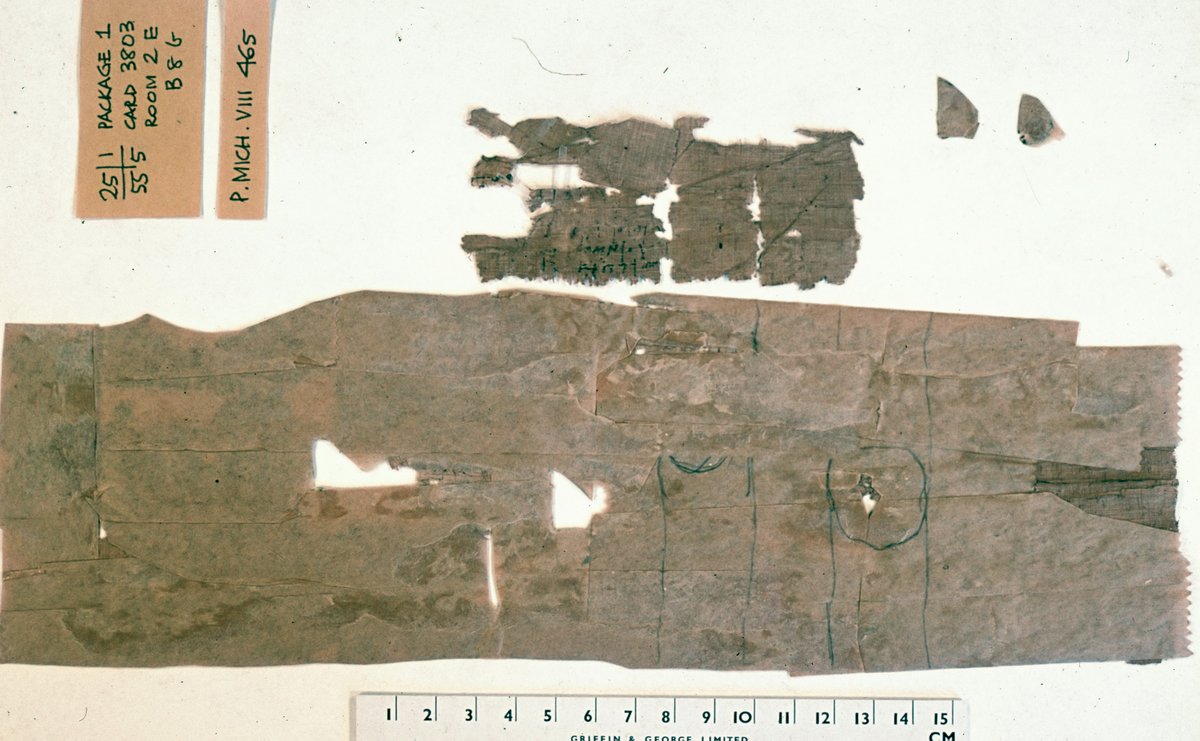 25/1 PACKAGE 1
55/5 CARD 3803
ROOM 2 E
B 8 G
P. MICH. VIII 465
1 2 3 4 5 6 7 8 9 10 11 12 13 14 15
GRIFFIN & GEORGE LIMITED
CM